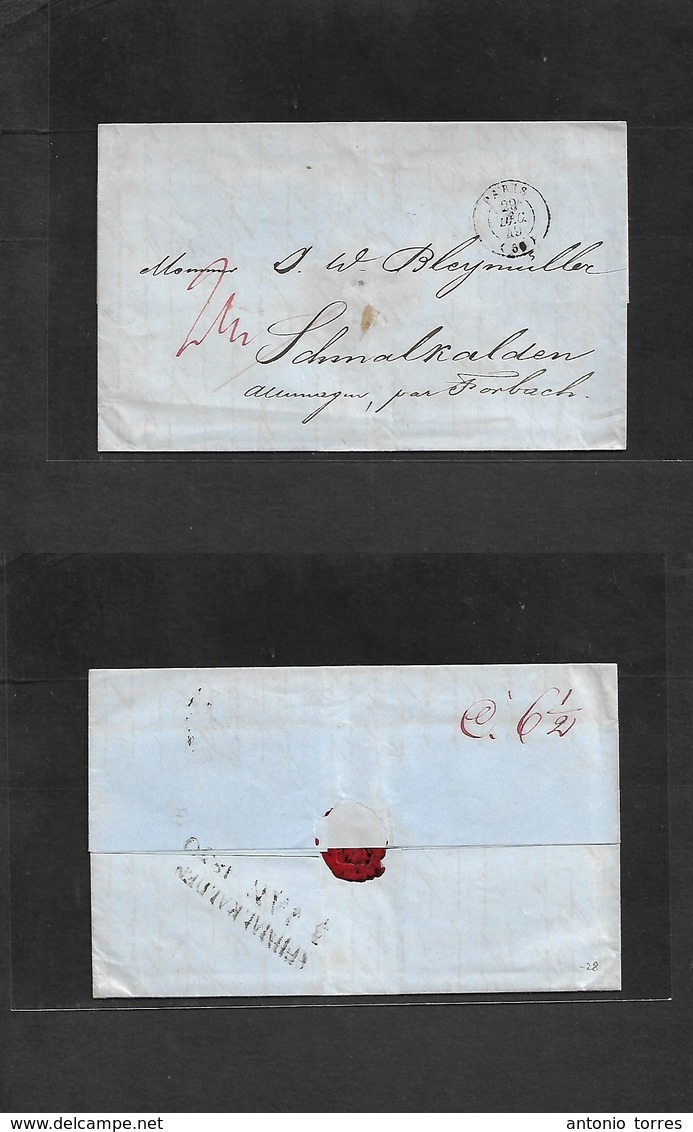 PARIS
29
DEC.
49
(60)
J. W. Bleymüller
Schmalkalden
Allemagne, par Forbach.
C. 6 1/2
SCHMALKALDEN
3 JAN 1850
-28
www.delcampe.net
antonio torres